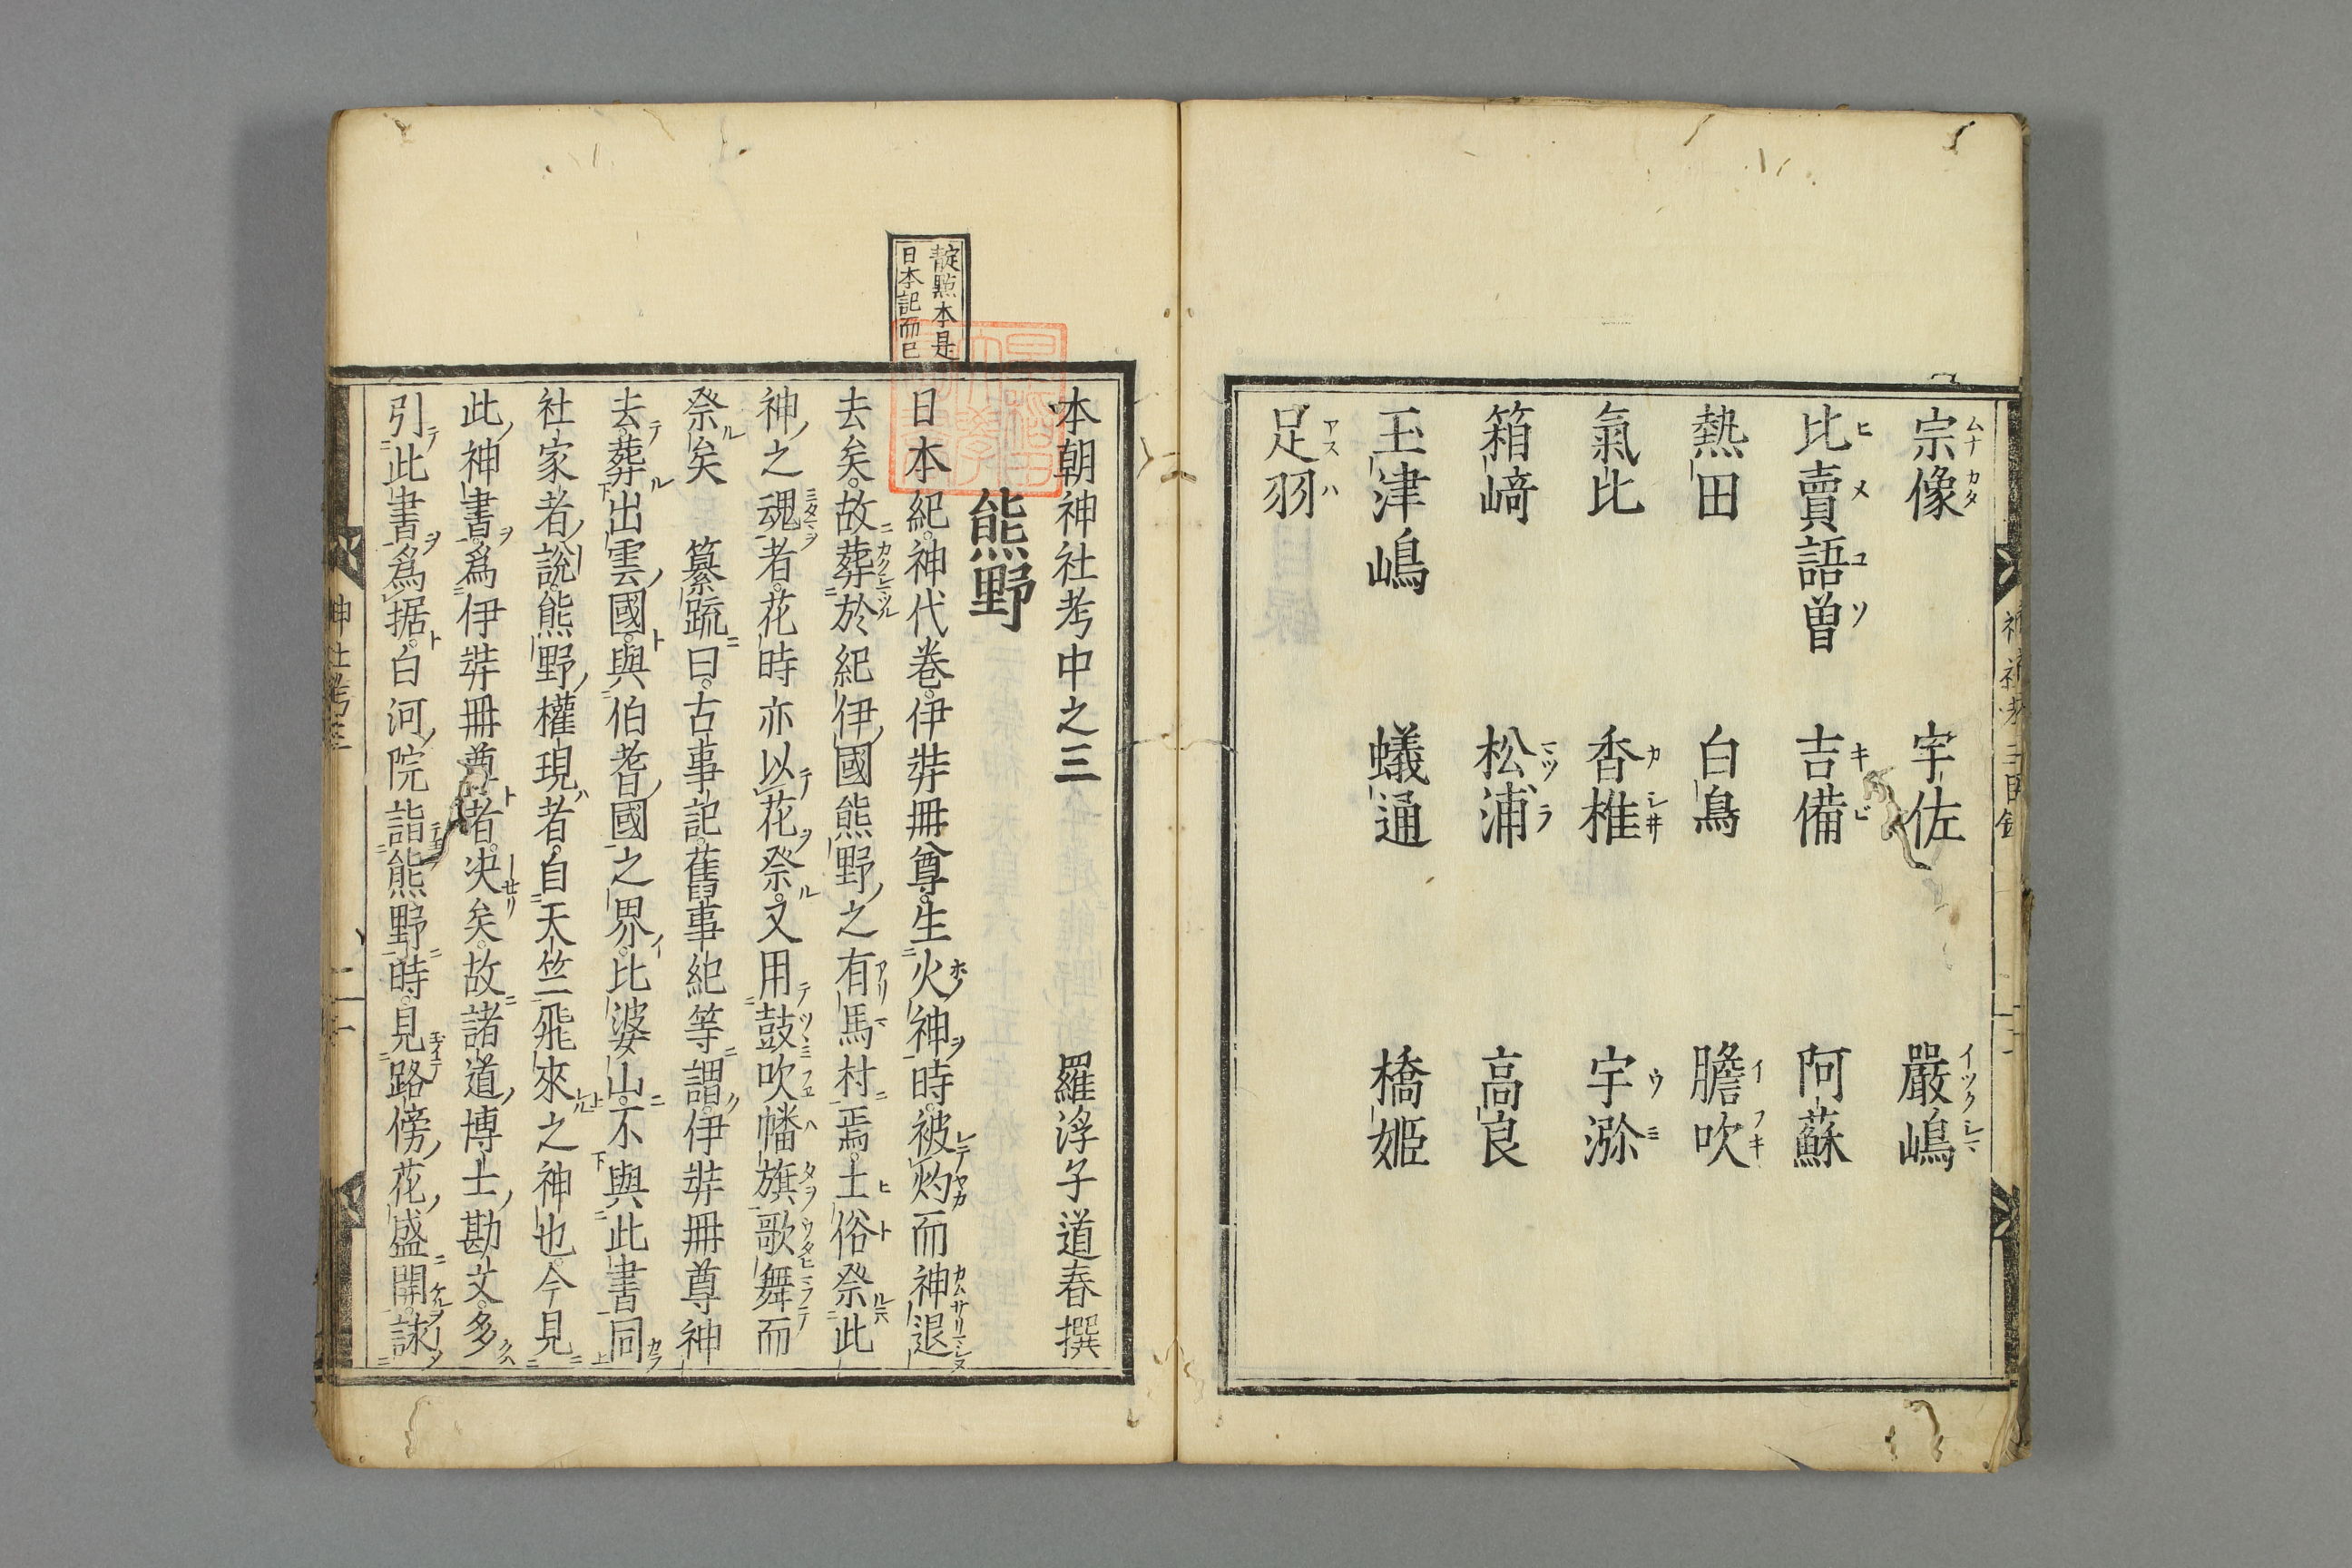 宗像 宇佐 嚴嶋
比賣語曽 吉備 阿蘇
熱田 白鳥 膽吹
氣比 香椎 宇瀰
箱﨑 松浦 高良
玉津嶋 蟻通 橋姫
足羽
本朝神社考中之三 羅浮子道春撰
熊野
日本紀。神代卷。伊弉冊尊。生火神時。被灼而神退
去矣。故葬於紀伊國熊野之有馬村焉。土俗祭此
神之魂者。花時亦以花祭。又用鼓吹幡旗歌舞而
祭矣 纂疏曰。古事記。舊事紀等謂。伊弉冊尊神
去。葬出雲國。與伯耆國之界。比婆山。不與此書同
社家者説。熊野權現者。自天竺飛來之神也。今見
此神書。爲伊弉冊尊者。决矣。故諸道博士勘文。多
引此書爲据。白河院詣熊野時。見路傍花盛開。詠
靛點本是
日本記而已
神社考三